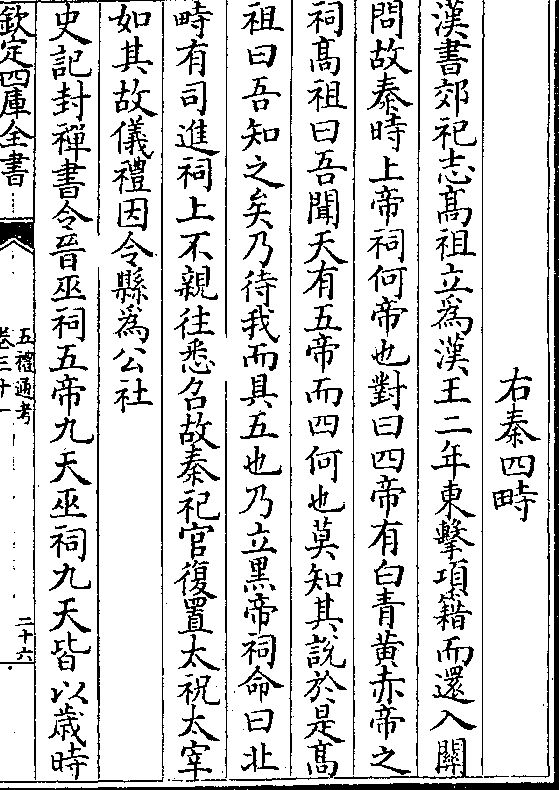 右秦四畤
漢書郊祀志髙祖立為漢王二年東擊項籍而還入關
問故秦時上帝祠何帝也對曰四帝有白青黄赤帝之
祠髙祖曰吾聞天有五帝而四何也莫知其說於是髙
祖曰吾知之矣乃待我而具五也乃立黒帝祠命曰北
畤有司進祠上不親往悉召故秦祀官復置太祝太宰
如其故儀禮因令縣為公社
史記封禪書令晉巫祠五帝九天巫祠九天皆以歳時
欽定四庫全書
五禮通考
卷三十一
二十六